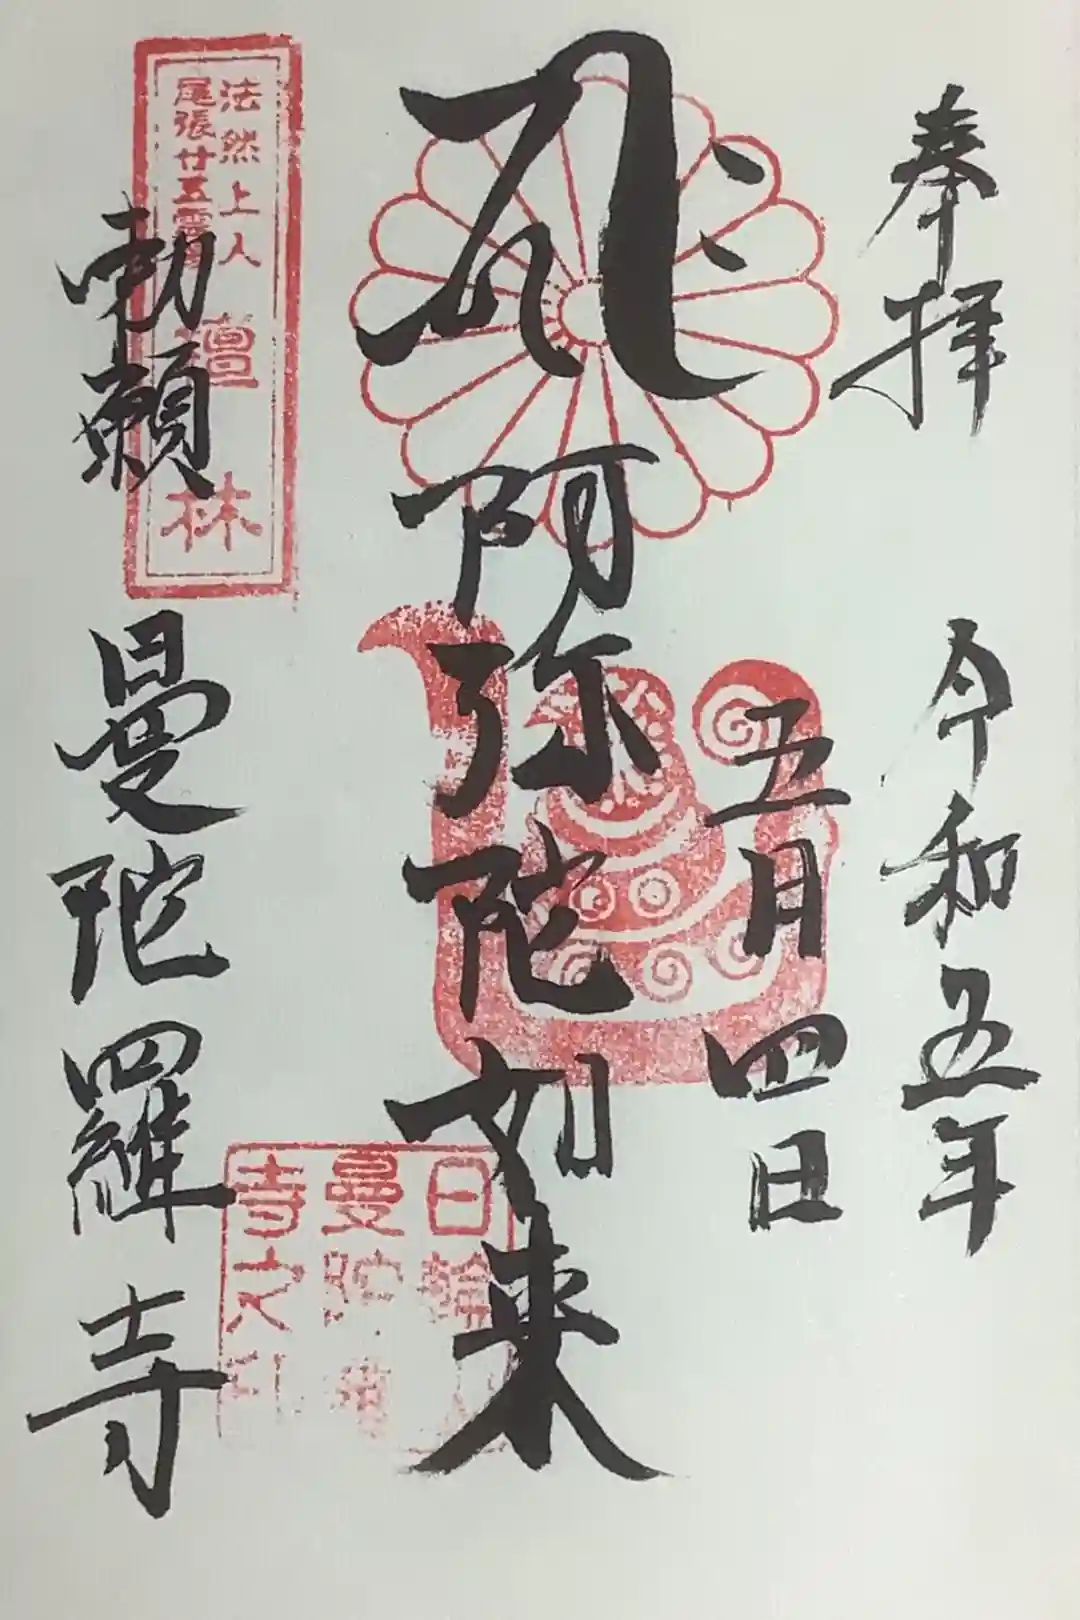 奉拝
令和五年
五月四日
阿弥陀如来
勅願
曼陀羅寺
法然上人
尾張廿五霊場
檀林
日輪山
曼陀羅
寺之印